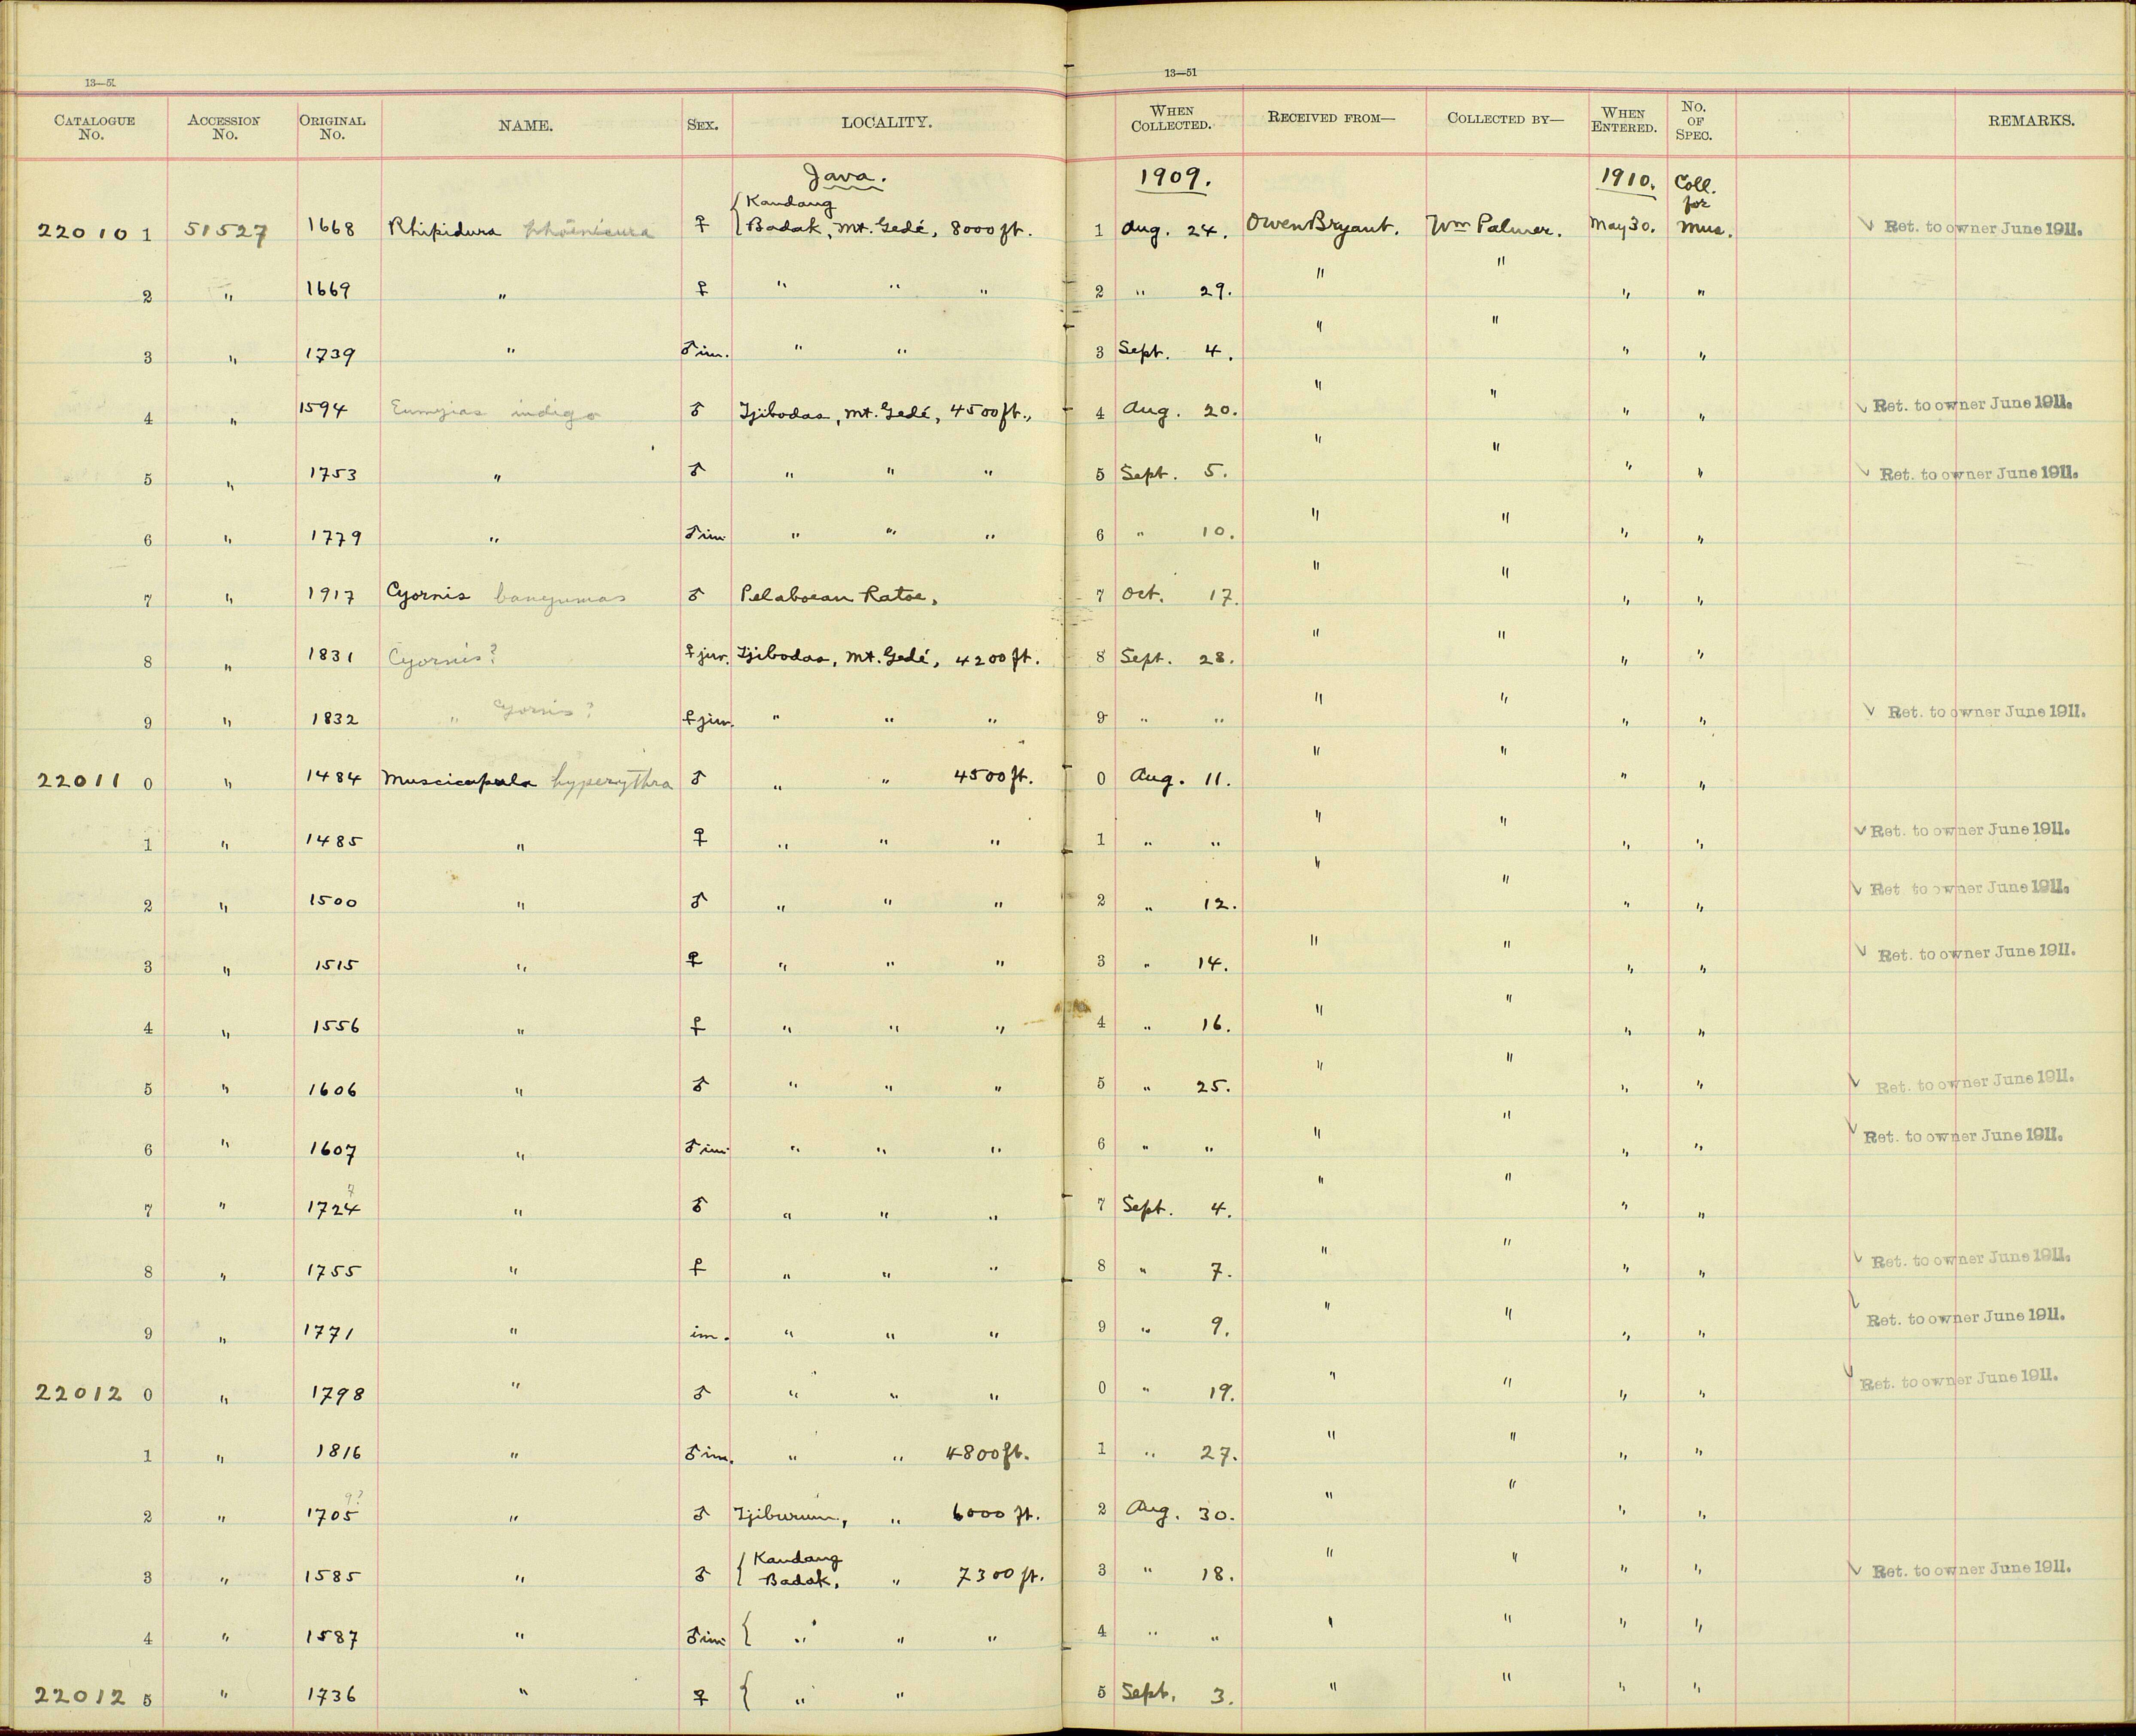 13—51
13—51
CATALOGUE No. ACCESSION No. ORIGINAL No. NAME. SEX. LOCALITY. WHEN COLLECTED. RECEIVED FROM— COLLECTED BY— WHEN ENTERED. No. OF SPEC. REMARKS.
Java. 1909. 1910. Coll. for
220101 51527 1668 Rhipidura phoenicura ♀ { Kandang Badak, Mt. Gedé, 8000 ft. 1 Aug. 24. Owen Bryant. Wm Palmer. May 30. Mus. ✓ Ret. to owner June 1911.
2 " 1669 " ♀ " " " 2 " 29. " " " "
3 " 1739 " ♂ im. " " 3 Sept. 4. " " " "
4 " 1594 Eumyias indigo ♂ Tjibodas, Mt. Gedé, 4500 ft., 4 Aug. 20. " " " " ✓ Ret. to owner June 1911.
5 " 1753 " ♂ " " " 5 Sept. 5. " " " " ✓ Ret. to owner June 1911.
6 " 1779 " ♂ im. " " " 6 " 10. " " " "
7 " 1917 Cyornis banyumas ♂ Pelaboean Ratoe, 7 Oct. 17. " " " "
8 " 1831 Cyornis? ♀ juv. Tjibodas, Mt. Gedé, 4200 ft. 8 Sept. 28. " " " "
9 " 1832 " Cyornis? ♀ juv. " " " 9 " " " " " " ✓ Ret. to owner June 1911.
220110 " 1484 Muscicapula hyperythra ♂ " " 4500 ft. 0 Aug. 11. " " " "
1 " 1485 " ♀ " " " 1 " " " " " " ✓ Ret. to owner June 1911.
2 " 1500 " ♂ " " " 2 " 12. " " " " ✓ Ret. to owner June 1911.
3 " 1515 " ♀ " " " 3 " 14. " " " " ✓ Ret. to owner June 1911.
4 " 1556 " ♀ " " " 4 " 16. " " " "
5 " 1606 " ♂ " " " 5 " 25. " " " " ✓ Ret. to owner June 1911.
6 " 1607 " ♂ im. " " " 6 " " " " " " ✓ Ret. to owner June 1911.
7 " 1724 ? " ♂ " " " 7 Sept. 4. " " " "
8 " 1755 " ♀ " " " 8 " 7. " " " " ✓ Ret. to owner June 1911.
9 " 1771 " im. " " " 9 " 9. " " " " ✓ Ret. to owner June 1911.
220120 " 1798 " ♂ " " " 0 " 19. " " " " ✓ Ret. to owner June 1911.
1 " 1816 " ♂ im. " " 4800 ft. 1 " 27. " " " "
2 " 1705 9? " ♂ Tjiburum, " 6000 ft. 2 Aug. 30. " " " "
3 " 1585 " ♂ { Kandang Badak, " 7300 ft. 3 " 18. " " " " ✓ Ret. to owner June 1911.
4 " 1587 " ♂ im. { " " " 4 " " " " " "
220125 " 1736 " ♀ { " " 5 Sept. 3. " " " "